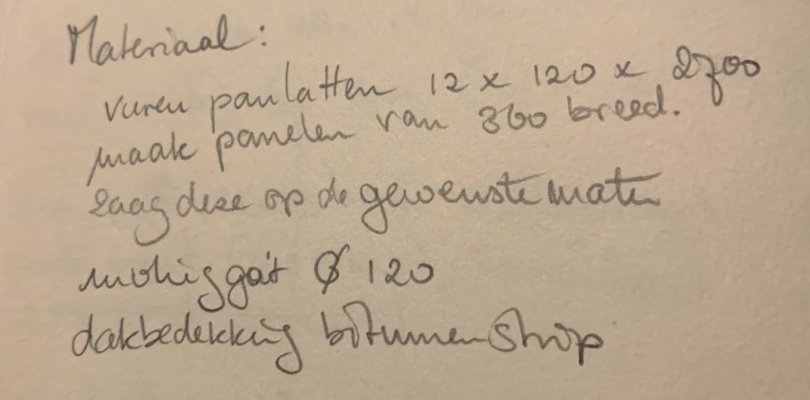 Materiaal:
vuren panlatten 12 x 120 x 2700
maak panelen van 360 breed.
zaag deze op de gewenste maten
gat Ø 120
dakbedekking bitumen strip